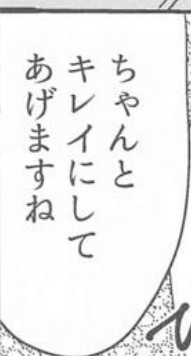 ちゃんと
キレイにして
あげますね